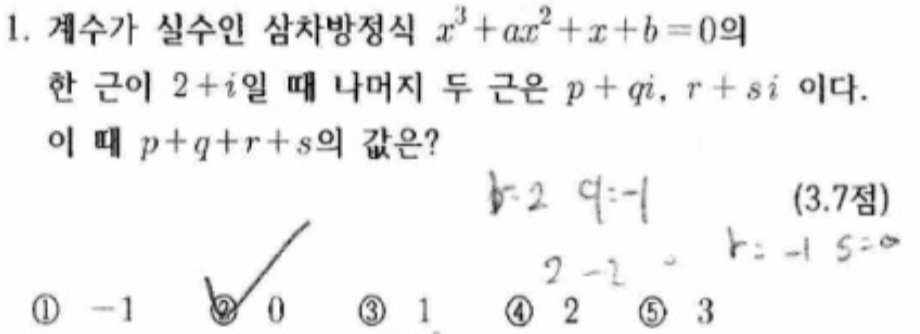 1. 계수가 실수인 삼차방정식 x³+ax²+x+b=0의
한 근이 2+i일 때 나머지 두 근은 p+qi, r+si 이다.
이 때 p+q+r+s의 값은?
p=2 q=-1
(3.7점)
r=-1 s=0
2-2
① -1 ② 0 ③ 1 ④ 2 ⑤ 3